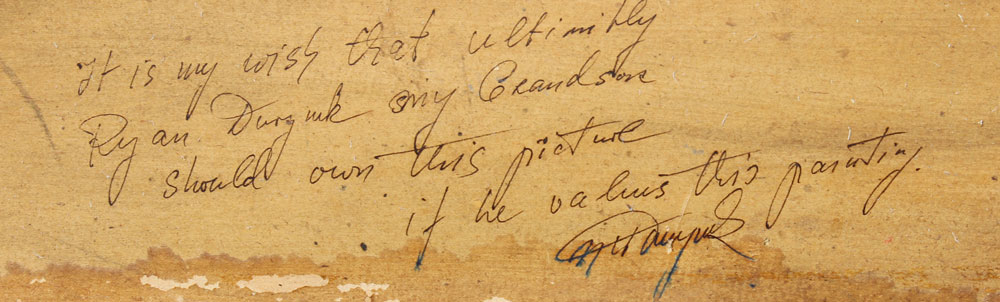 It is my wish that ultimitly
Ryan Durzuk my Grandson
should own this picture
if he values this painting.